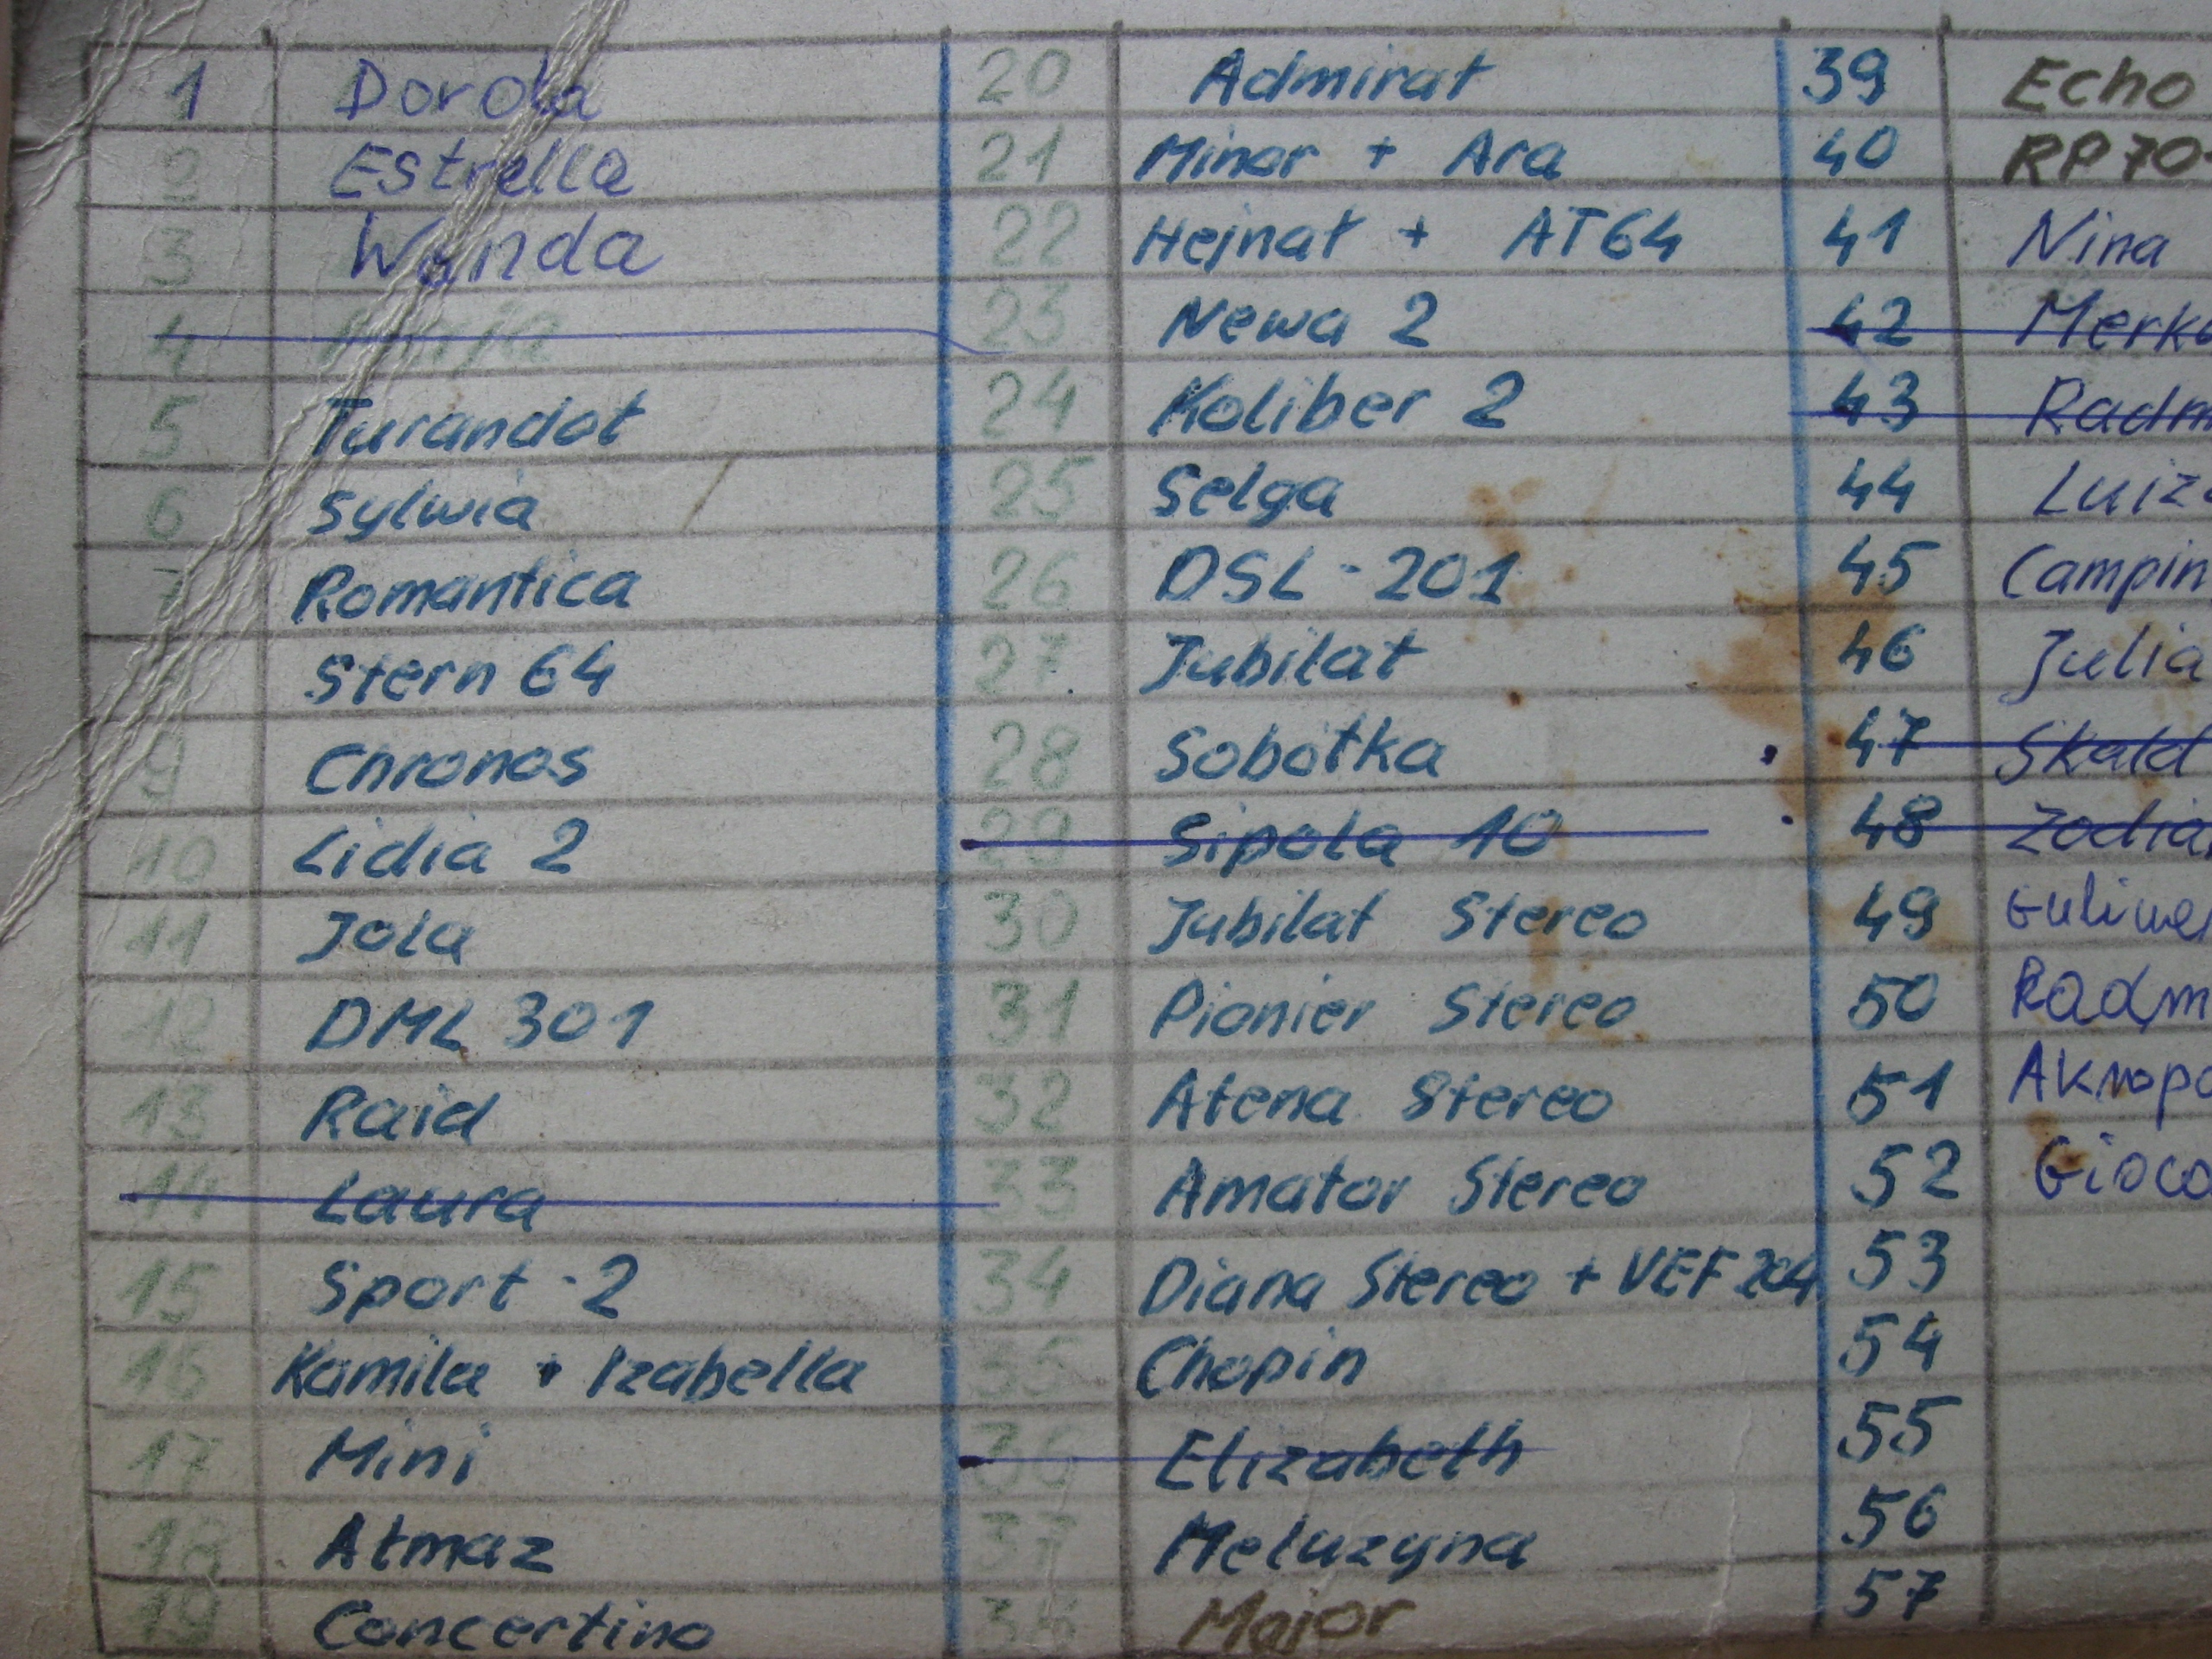 1 Dorota
2 Estrella
3 Wanda
4
5 Turandot
6 Sylwia
7 Romantica
Stern 64
9 Chronos
10 Lidia 2
11 Jola
12 DML 301
13 Raid
14 Laura
15 Sport-2
16 Kamila + Izabella
17 Mini
18 Ałmaz
19 Concertino
20 Admirał
21 Minor + Ara
22 Hejnał + AT64
23 Newa 2
24 Koliber 2
25 Selga
26 DSL-201
27 Jubilat
28 Sobótka
29 Sipola 10
30 Jubilat Stereo
31 Pionier Stereo
32 Atena Stereo
33 Amator Stereo
34 Diana Stereo + VEF 204
35 Chopin
36 Elizabeth
37 Meluzyna
38 Major
39 Echo
40 RP70
41 Nina
42 Merk
43 Radm
44 Luiz
45 Campin
46 Julia
47 Skald
48 Zodia
49 Guliwe
50 Radm
51
52 Gioco
53
54
55
56
57